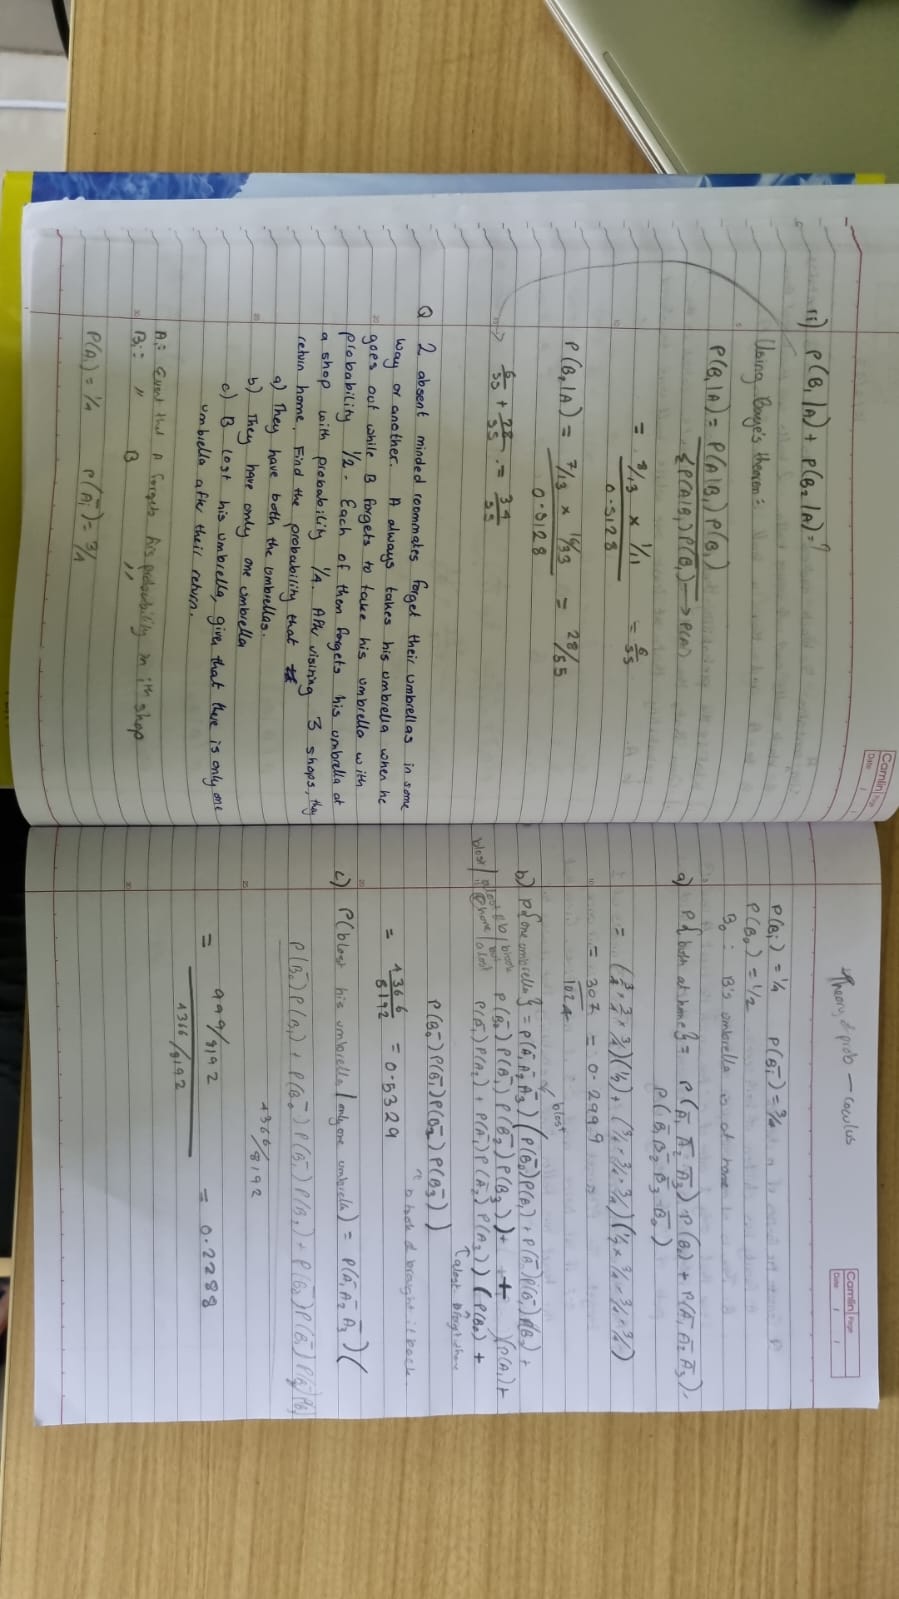 Camlin Page
Date / /
ii) P(B₁|A) + P(B₂|A) = ?
Using Baye's theorem:
P(B₁|A) = P(A|B₁) P(B₁)
P(A|B₁) P(B₁) → P(A)
= 8/13 × 1/11 = 6/55
0.5128
P(B₂|A) = 7/13 × 16/33 = 28/55
0.5128
→ 6/55 + 28/55 = 34/55
Q 2 absent minded roommates forget their umbrellas in some
way or another. A always takes his umbrella when he
goes out while B forgets to take his umbrella with
probability 1/2. Each of them forgets his umbrella at
a shop with probability 1/4. After visiting 3 shops, they
return home. Find the probability that
a) They have both the umbrellas.
b) They have only one umbrella
c) B lost his umbrella, given that there is only one
umbrella after their return.
Aᵢ: Event that A forgets his probability in ith shop
Bᵢ: " B "
P(Aᵢ) = 1/4 P(A̅ᵢ) = 3/4
Camlin Page
Date / /
Theory of prob —
P(Bᵢ) = 1/4 P(B̅ᵢ) = 3/4
P(B₀) = 1/2
B₀ : B's umbrella is at home
a) P{both at home} = P(A̅₁ A̅₂ A̅₃) P(B₀) + P(A̅₁ A̅₂ A̅₃).
P(B̅₁ B̅₂ B̅₃ B̅₀)
= (3/4 × 3/4 × 3/4)(1/2) + (3/4 × 3/4 × 3/4)(1/2 × 3/4 × 3/4 × 3/4)
= 307 = 0.2999
1024
b lost
b) P{one umbrella} = P(A̅₁ A̅₂ A̅₃)
P(B̅₀) P(B̅₁) P(B̅₂) P(B₃)) +
P(A̅₁) P(A₂) + P(A̅₁) P(A̅₂) P(A₃)) (P(B₀) +
P(B̅₀) P(B̅₁) P(B̅₂) P(B̅₃))
b took & brought it back
= 4366 = 0.5329
8192
c) P(b lost his umbrella | only one umbrella) = P(A̅₁ A̅₂ A̅₃) (
P(B̅₀) P(B₁) + P(B̅₀) P(B̅₁) P(B₂) + P(B̅₀) P(B̅₁)
4366/8192
= 999/8192 = 0.2288
4366/8192